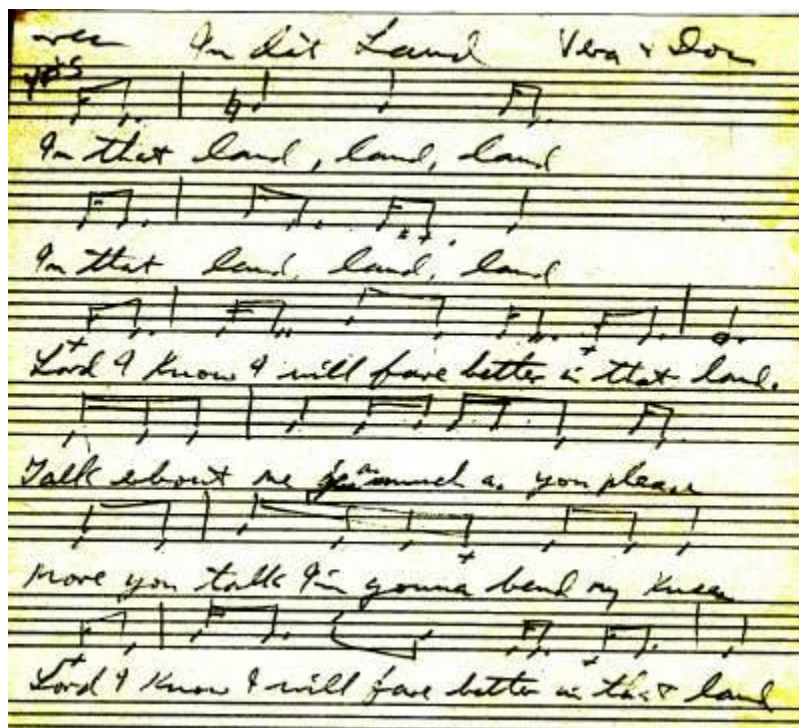 In dit Land Vera + Don
In that land, land, land
In that land, land, land
Lord I know I will fare better in that land.
Talk about me as much as you please
More you talk I'm gonna bend my knees
Lord I know I will fare better in that land